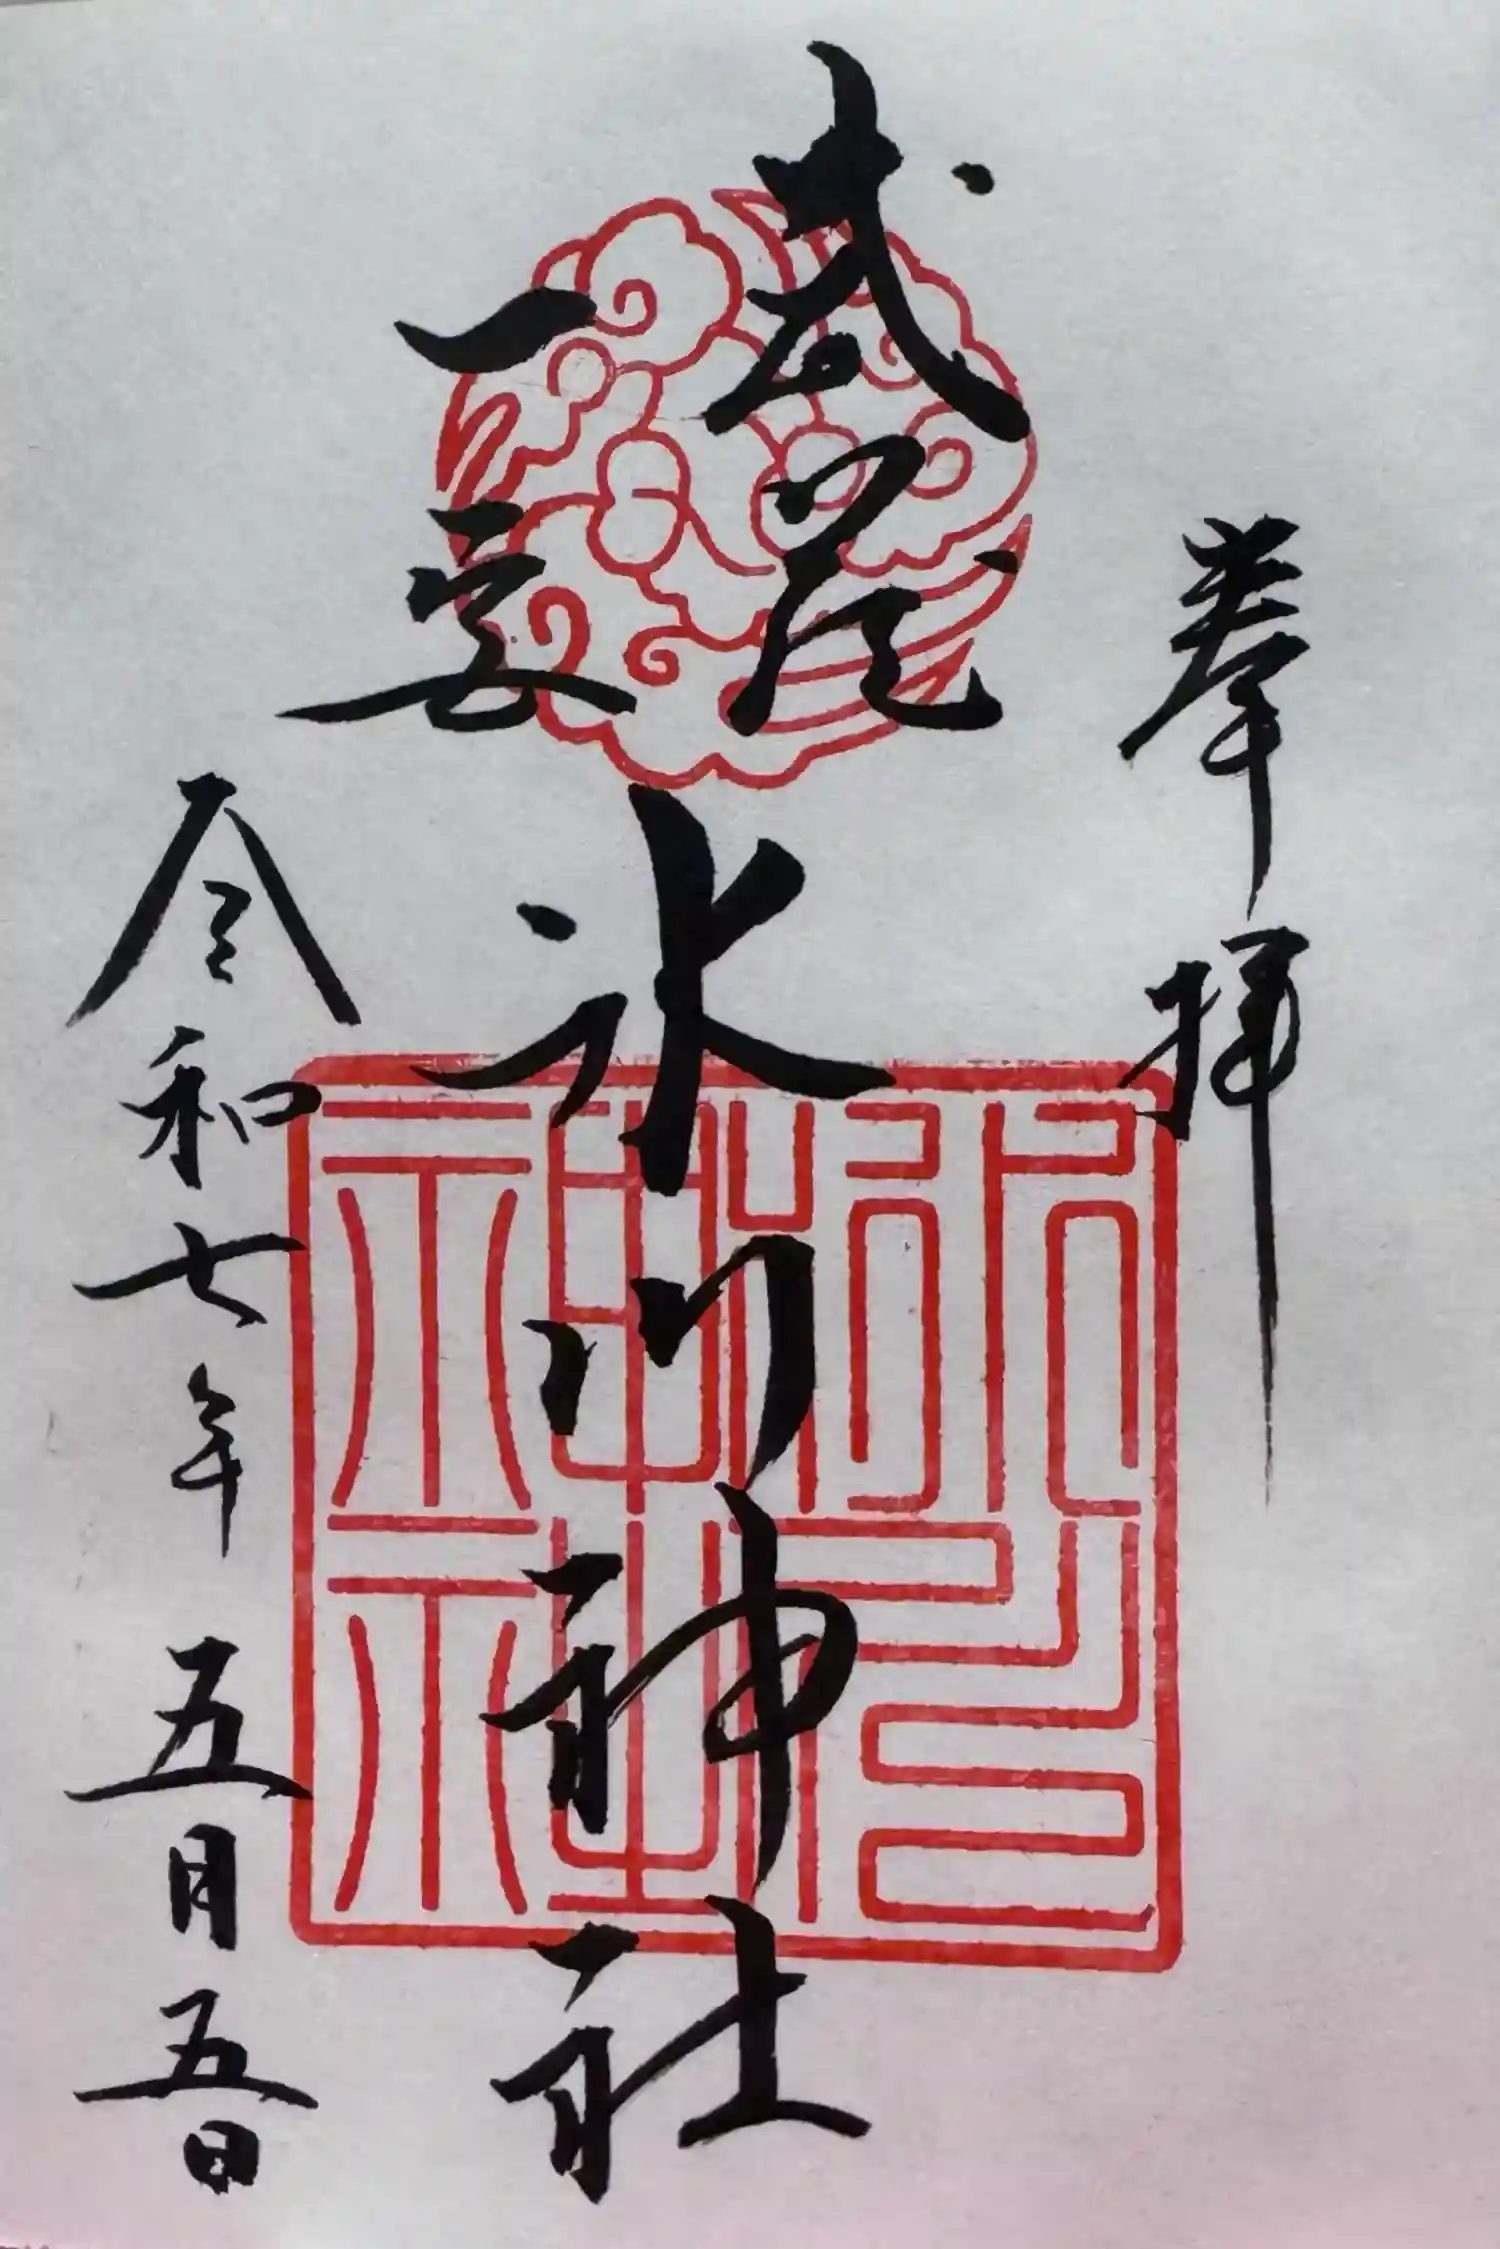 奉拝
武蔵
一宮
氷川神社
令和七年五月五日